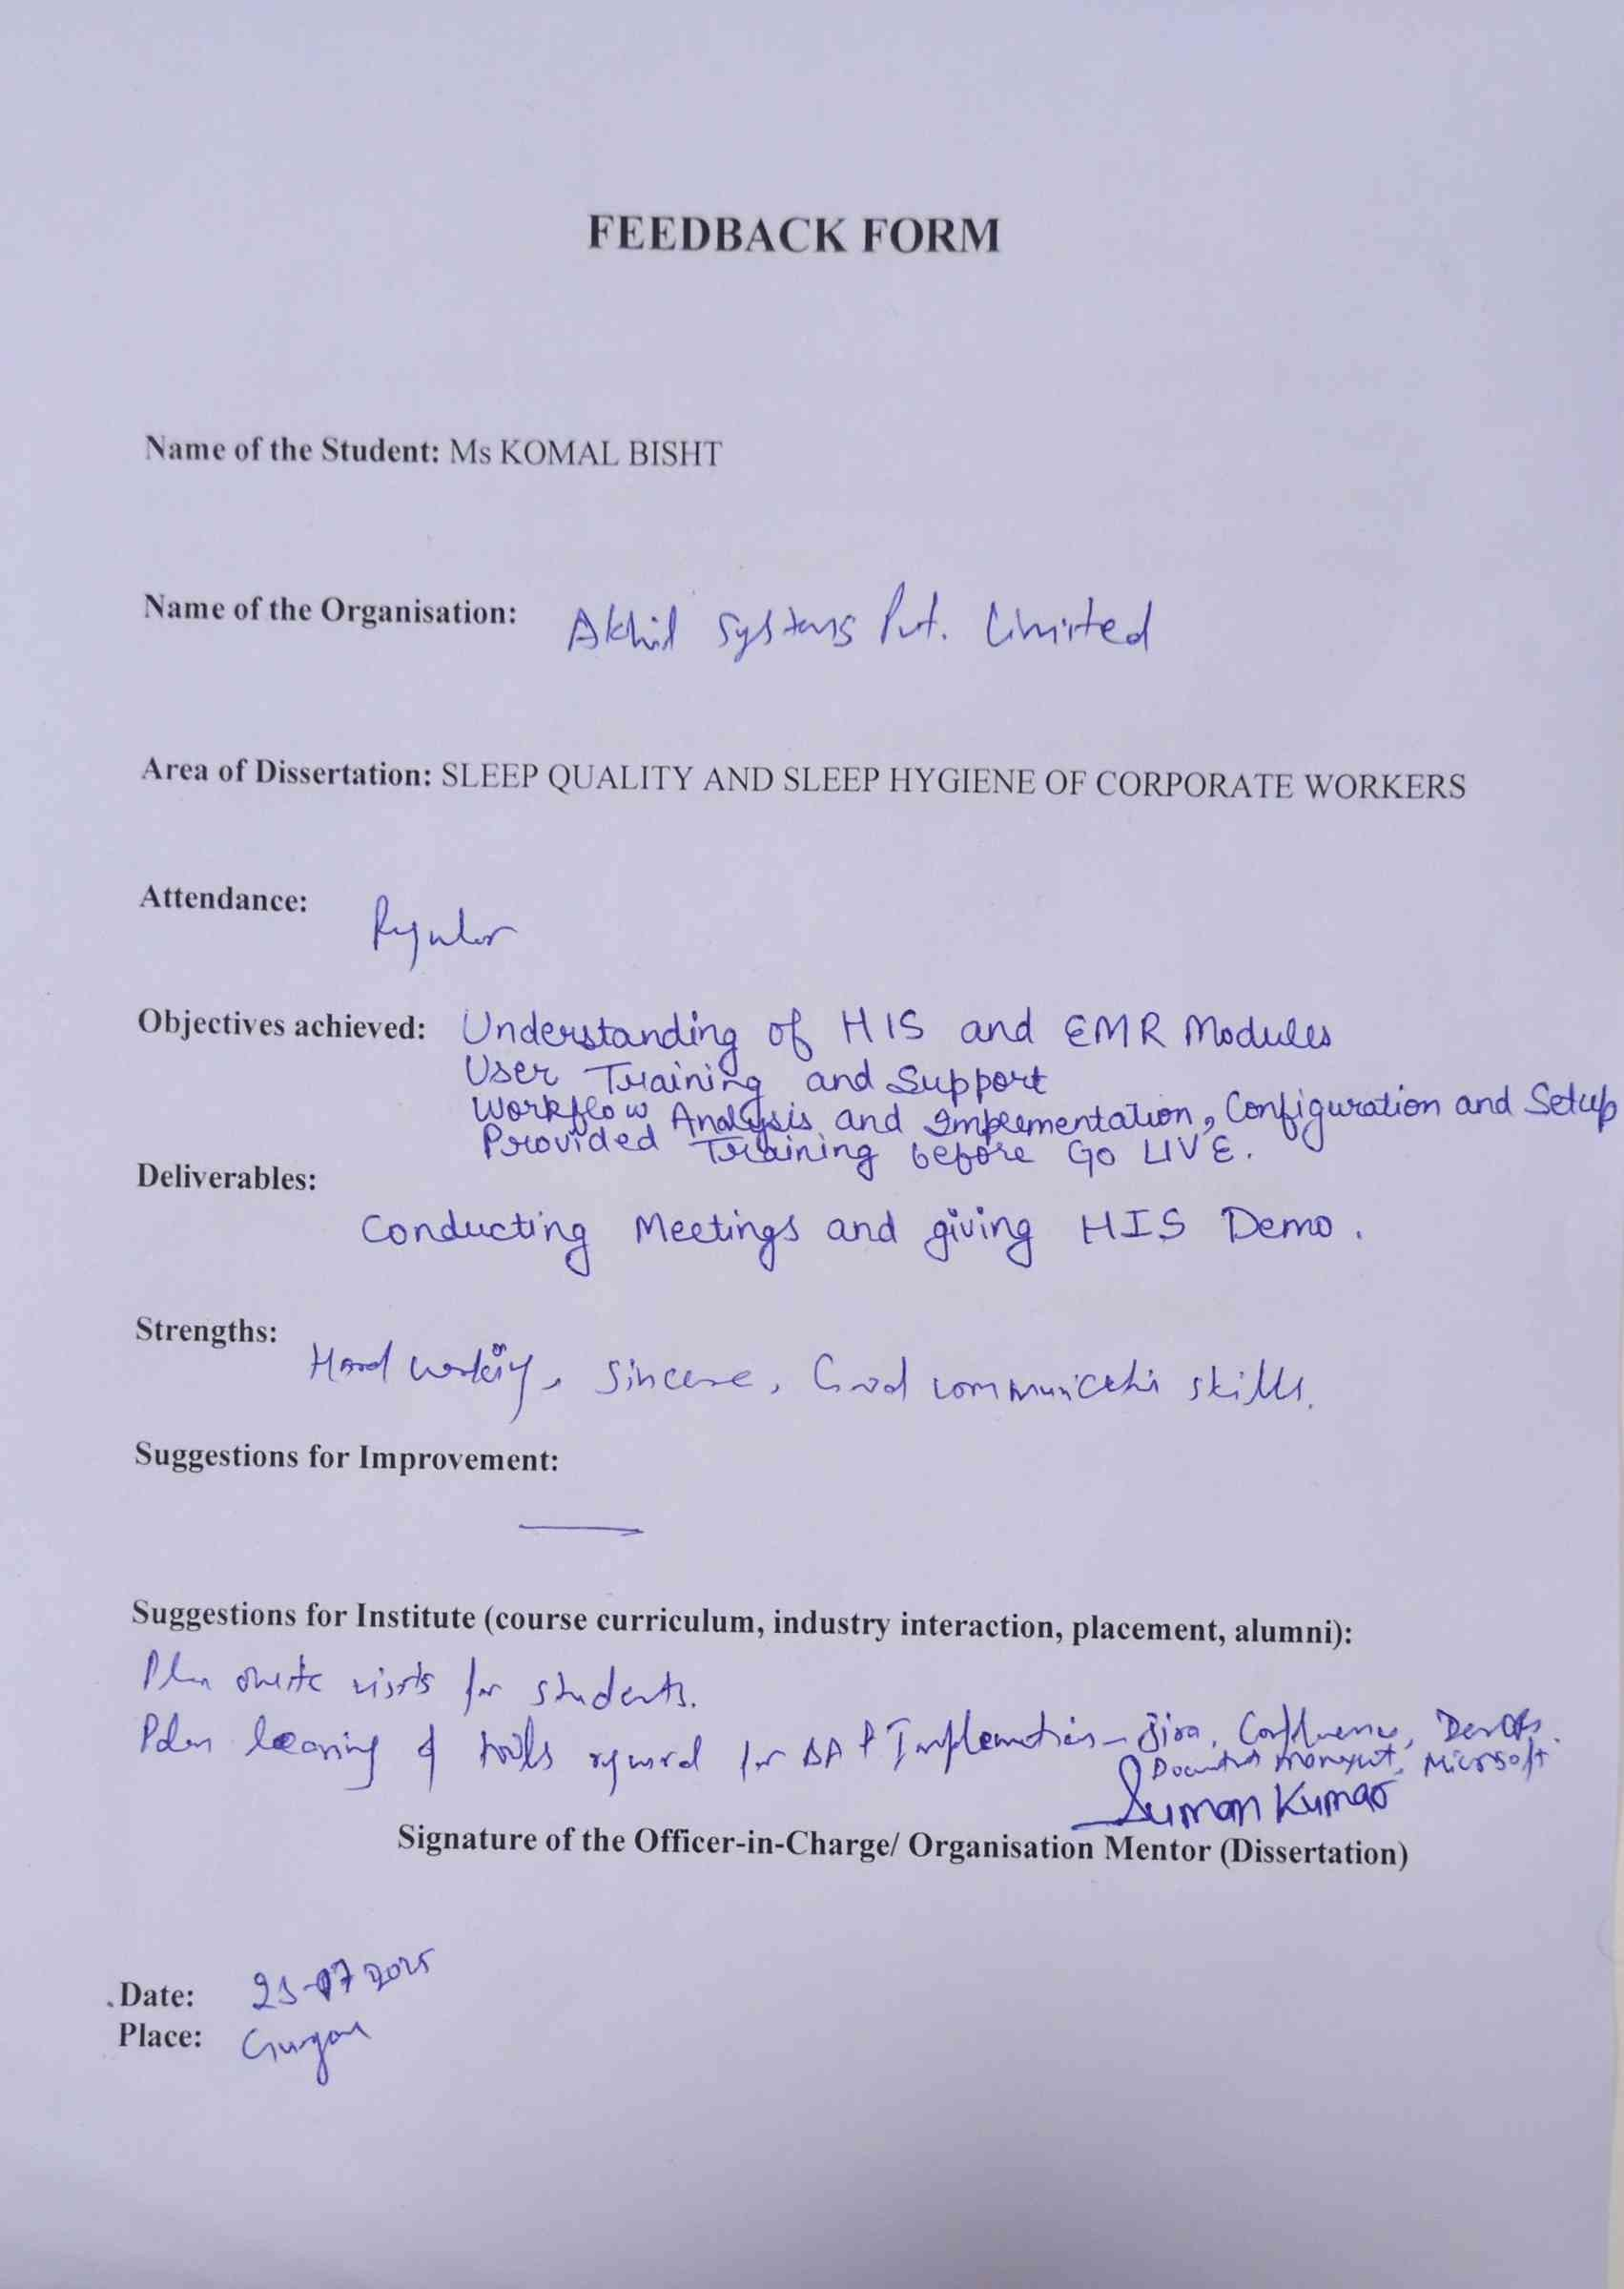 FEEDBACK FORM
Name of the Student: Ms KOMAL BISHT
Name of the Organisation: Akhil Systems Pvt. Limited
Area of Dissertation: SLEEP QUALITY AND SLEEP HYGIENE OF CORPORATE WORKERS
Attendance: Regular
Objectives achieved: Understanding of HIS and EMR Modules
User Training and Support
Workflow Analysis and Implementation, Configuration and Setup
Provided Training before Go LIVE.
Deliverables:
Conducting Meetings and giving HIS Demo.
Strengths:
Hard working, Sincere, Good communication skills.
Suggestions for Improvement:
Suggestions for Institute (course curriculum, industry interaction, placement, alumni):
Plan onsite visits for students.
Plan learning of tools required for BA & Implementation - Jira, Confluence, DevOps.
Microsoft
Suman Kumar
Signature of the Officer-in-Charge/ Organisation Mentor (Dissertation)
Date:
Place: Gurgaon